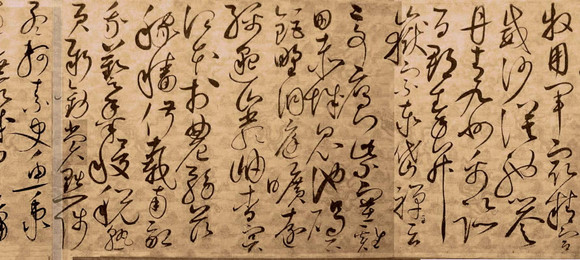 牧用軍最精宣
威沙漠馳譽
丹青九州禹跡
百郡秦并
嶽宗泰岱禪主云
亭雁門紫塞雞
田赤城昆池碣石
鉅野洞庭曠遠
綿邈巖岫杳冥
治本於農務茲
稼穡俶載南畝
我藝黍稷稅熟
貢新勸賞黜陟
孟軻敦素史魚秉